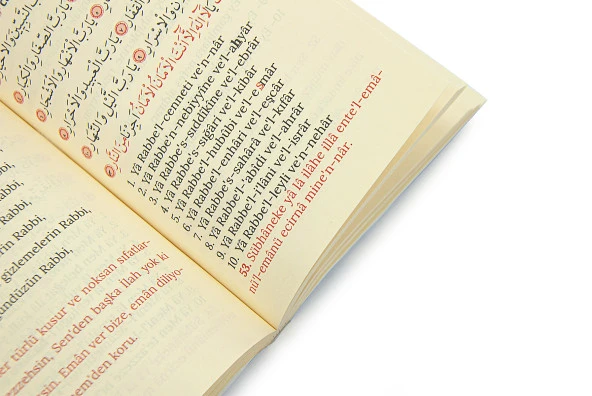 يَا رَبَّ الصِّغَارِ وَالْكِبَارِ
يَا رَبَّ الْعَبِيدِ وَالْاَحْرَارِ
يَا رَبَّ الَّيْلِ وَالنَّهَارِ
الْاَمَانُ الْاَمَانُ اَجِرْنَا مِنَ النَّارِ
1. Yâ Rabbe'l-cenneti ve'n-nâr
2. Yâ Rabbe'n-nebiyyîne ve'l-ahyâr
3. Yâ Rabbe's-sıddîkîne ve'l-ebrâr
4. Yâ Rabbe's-sıgâri ve'l-kibâr
5. Yâ Rabbe'l-hubûbi ve'l-esmâr
6. Yâ Rabbe'l-enhâri ve'l-eşcâr
7. Yâ Rabbe's-saharâ ve'l-kıfâr
8. Yâ Rabbe'l-'abîdi ve'l-ahrâr
9. Yâ Rabbe'l-i'lâni ve'l-isrâr
10. Yâ Rabbe'l-leyli ve'n-nehâr
53. Sübhâneke yâ lâ ilâhe illâ ente'l-emâ-
nü'l-emânü ecirnâ mine'n-nâr.
Rabbi,
Rabbi,
erin Rabbi,
gizlemelerin Rabbi,
ündüzün Rabbi,
her türlü kusur ve noksan sıfatlar-
zzehsin, Sen'den başka ilah yok ki
sin. Emân ver bize, emân diliyo-
em'den koru.